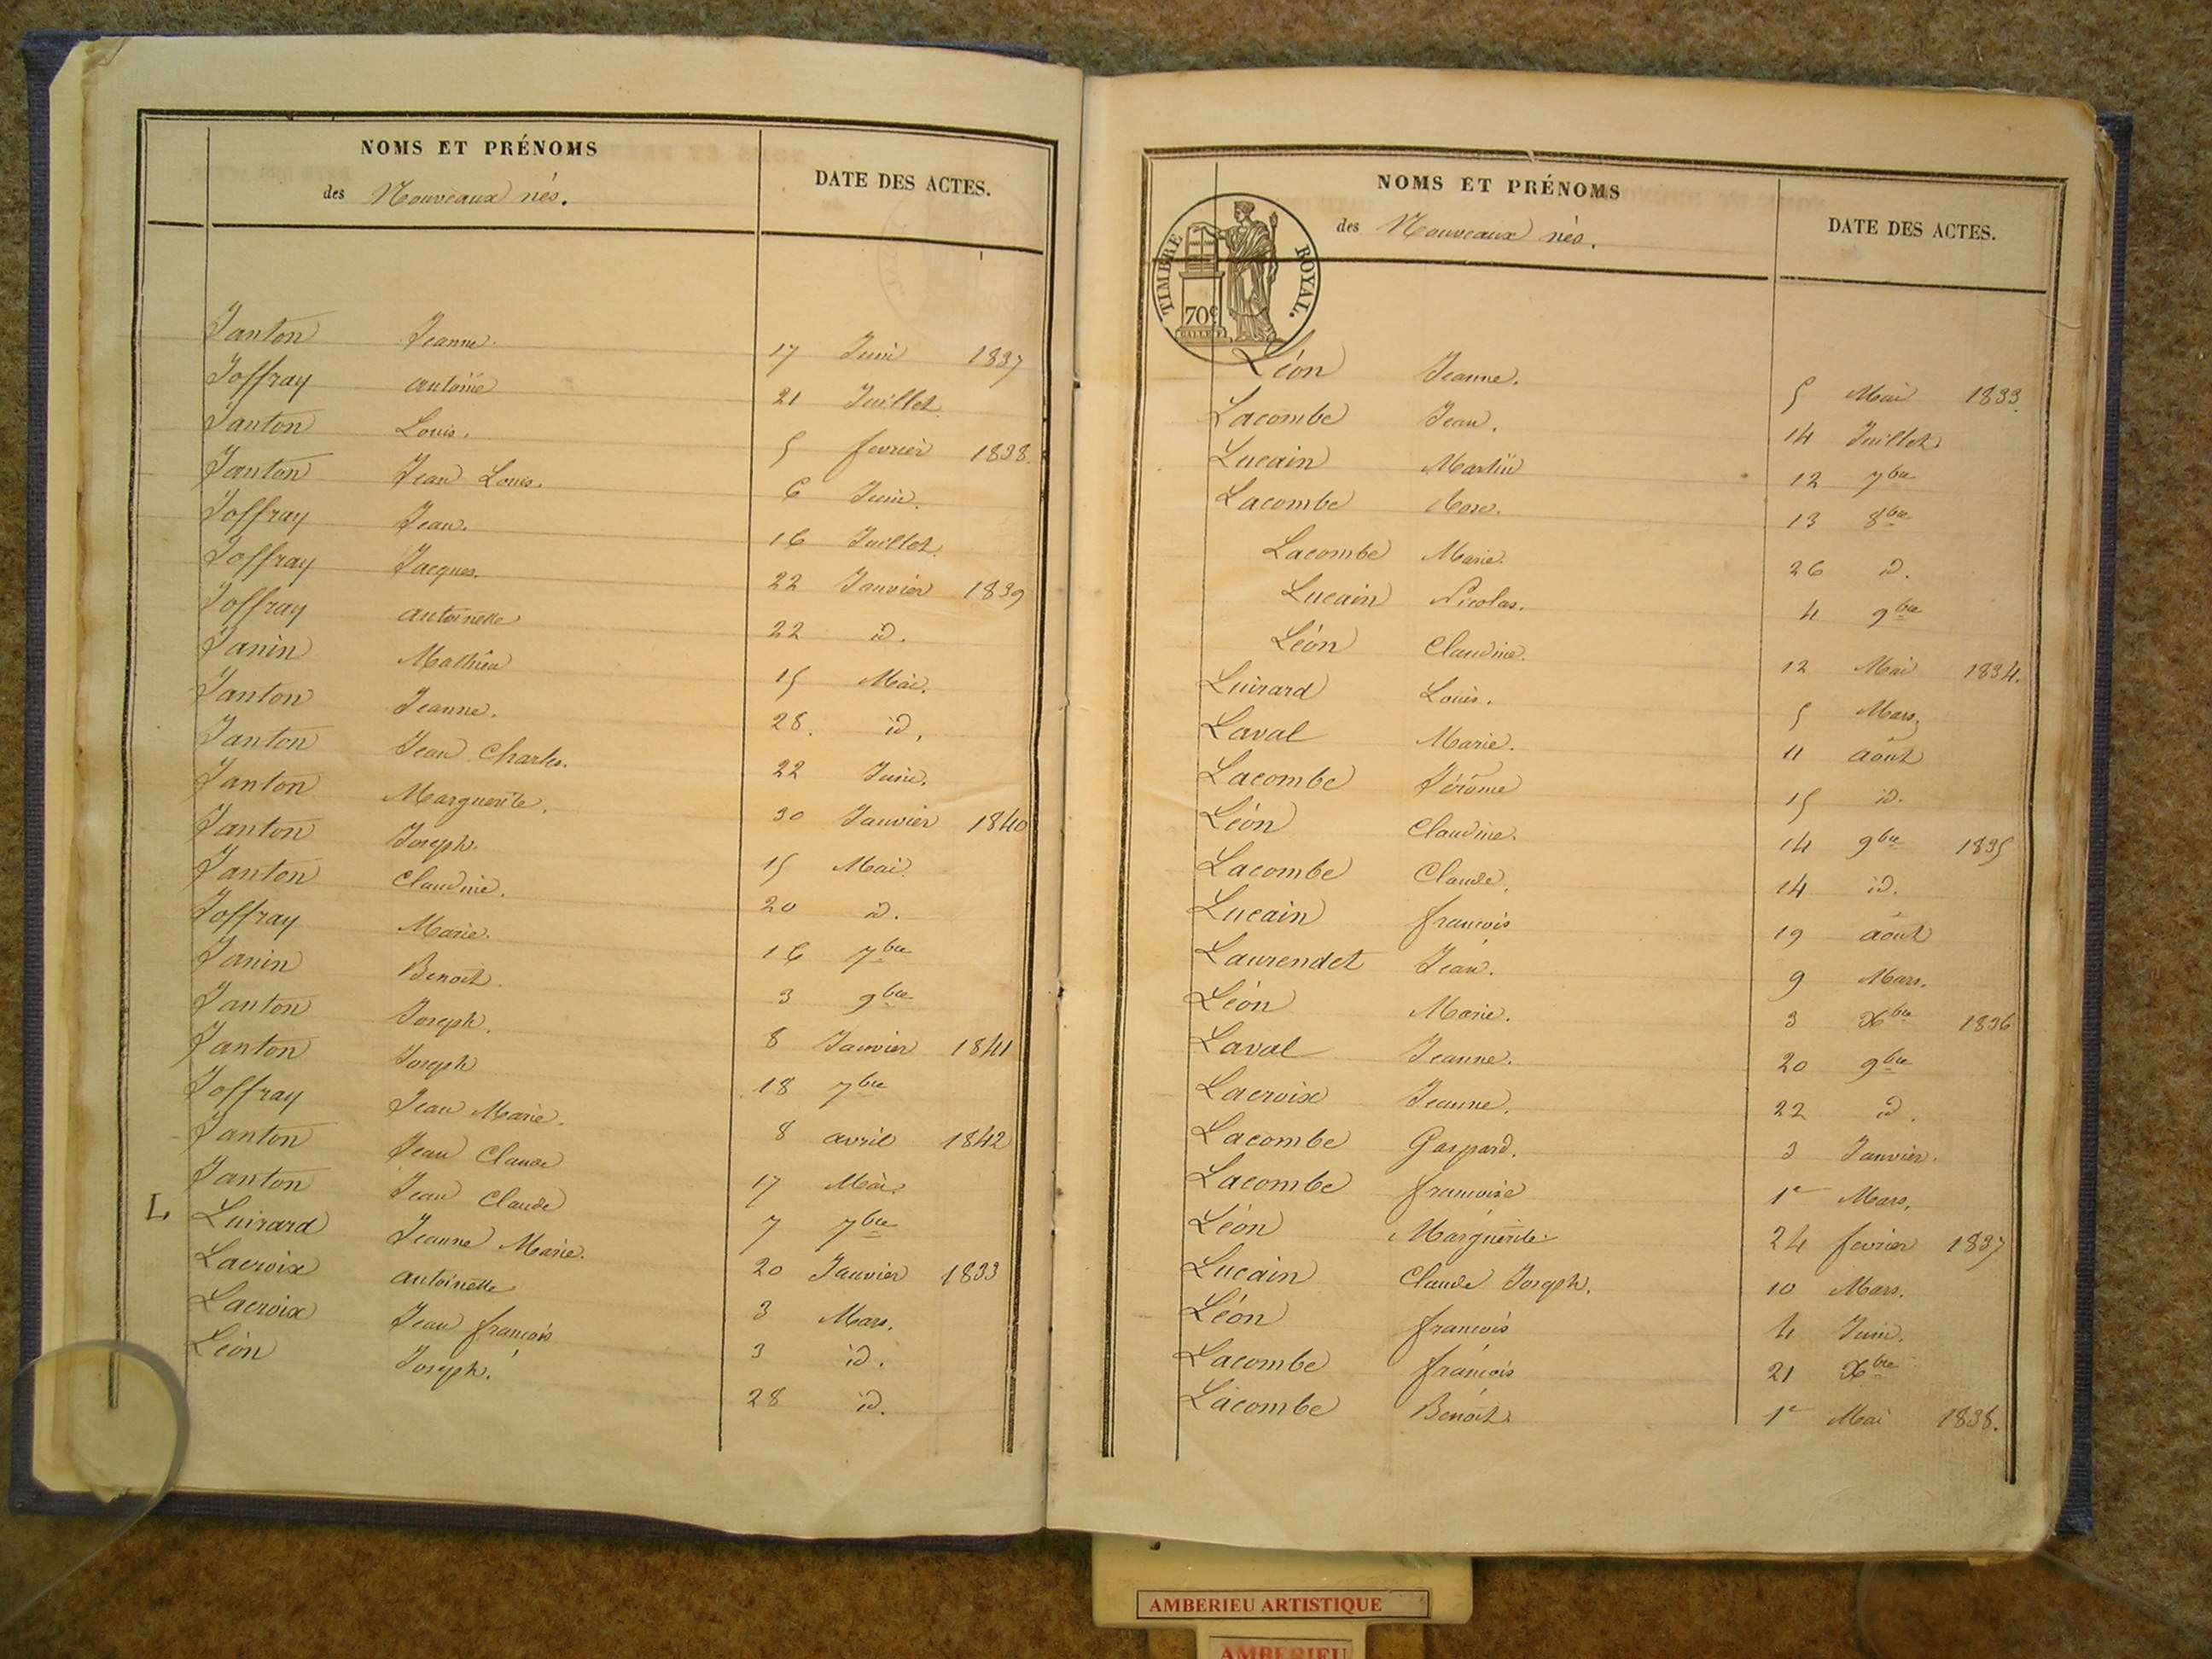 NOMS ET PRÉNOMS
des Nouveaux nés.
DATE DES ACTES.
Janton Jeanne. 17 Juin 1837
Joffray antoine 21 Juillet.
Janton Louis. 5 fevrier 1838.
Janton Jean Louis. 6 Juin.
Joffray Jean. 16 Juillet.
Joffray Jacques. 22 Janvier 1839
Joffray antoinette 22 id.
Janin Mathieu 15 Mai.
Janton Jeanne. 28. id.
Janton Jean Charles. 22 Juin.
Janton Marguerite. 30 Janvier 1840
Janton Joseph. 15 Mai.
Janton Claudine. 20 id.
Joffray Marie. 16 7bre
Janin Benoit. 3 9bre
Janton Joseph. 8 Janvier 1841
Janton Joseph 18 7bre
Joffray Jean Marie. 8 avril 1842
Janton Jean Claude 17 Mai.
Janton Jean Claude 7 7bre
L. Luirard Jeanne Marie. 20 Janvier 1833
Lacroix antoinette 3 Mars.
Lacroix Jean françois 3 id.
Léon Joseph. 28 id.
NOMS ET PRÉNOMS
des Nouveaux nés.
DATE DES ACTES.
TIMBRE ROYAL.
70c
Léon Jeanne. 5 Mai 1833.
Lacombe Jean. 14 Juillet.
Lucain Martin 12 7bre
Lacombe 13 8bre
Lacombe Marie. 26 id.
Lucain Nicolas. 4 9bre
Léon Claudine. 12 Mai 1834.
Luirard Louis. 5 Mars.
Laval Marie. 11 août
Lacombe Jérôme 15 id.
Léon Claudine. 14 9bre 1835
Lacombe Claude. 14 id.
Lucain françois 19 août
Laurendet Jean. 9 Mars.
Léon Marie. 3 Xbre 1836
Laval Jeanne. 20 9bre
Lacroix Jeanne. 22 id.
Lacombe Gaspard. 3 Janvier.
Lacombe françoise 1er Mars.
Léon Marguerite. 24 fevrier 1837
Lucain Claude Joseph. 10 Mars.
Léon françois 4 Juin.
Lacombe françois 21 Xbre
Lacombe Benoit. 1er Mai 1838.
AMBERIEU ARTISTIQUE
AMBERIEU